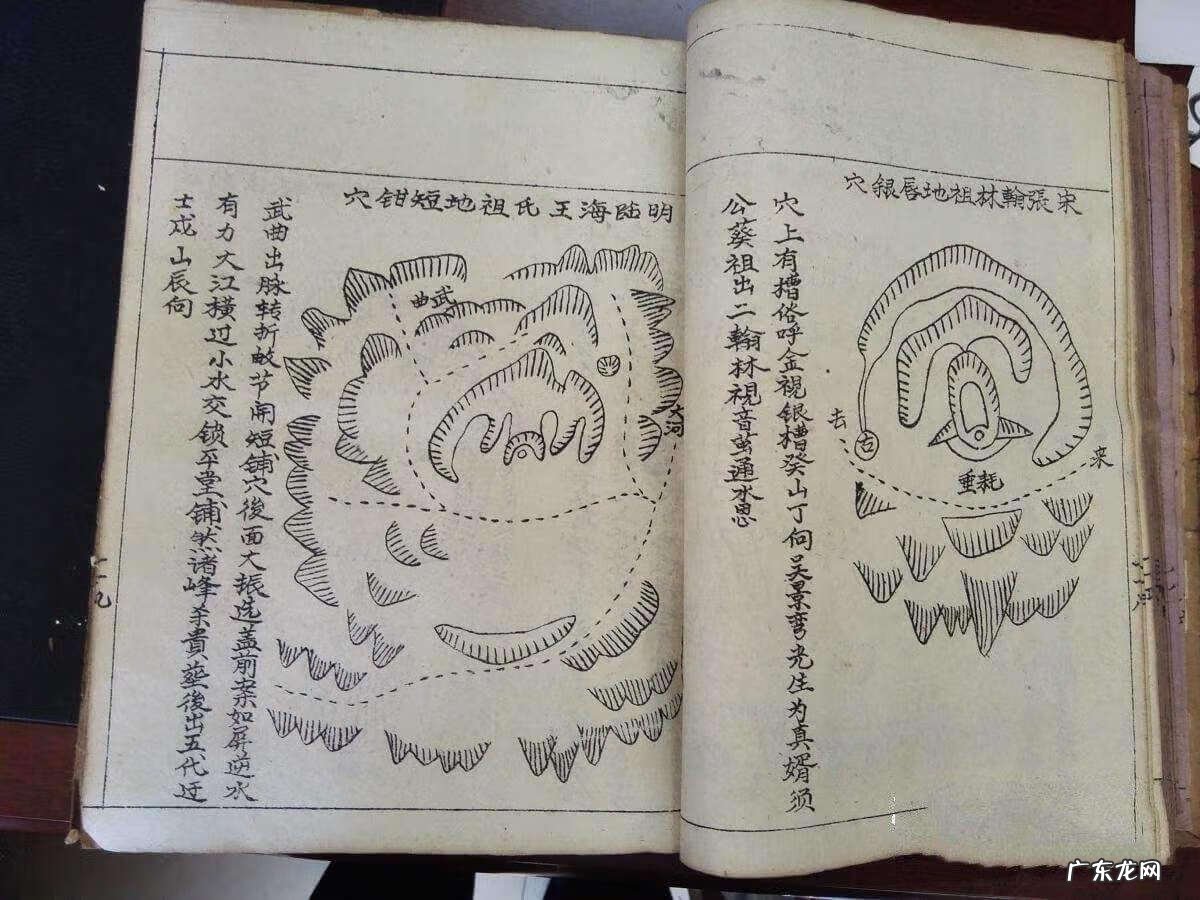 宋張翰林祖地唇銀穴
穴上有槽俗呼金視銀槽癸山丁向吴景弯光生为真婿须
公葵祖出二翰林視音茧通水思
去
古
来
耗垂
明陆海王氏祖地短钳穴
武曲
大河
武曲出脉转折敏节開短铺穴後面大振选盖前案如屏逆水
有力大江横过小水交锁平堂铺然诸峰杀貴塟後出五代迂
士戌山辰向
一一九
广东龙网